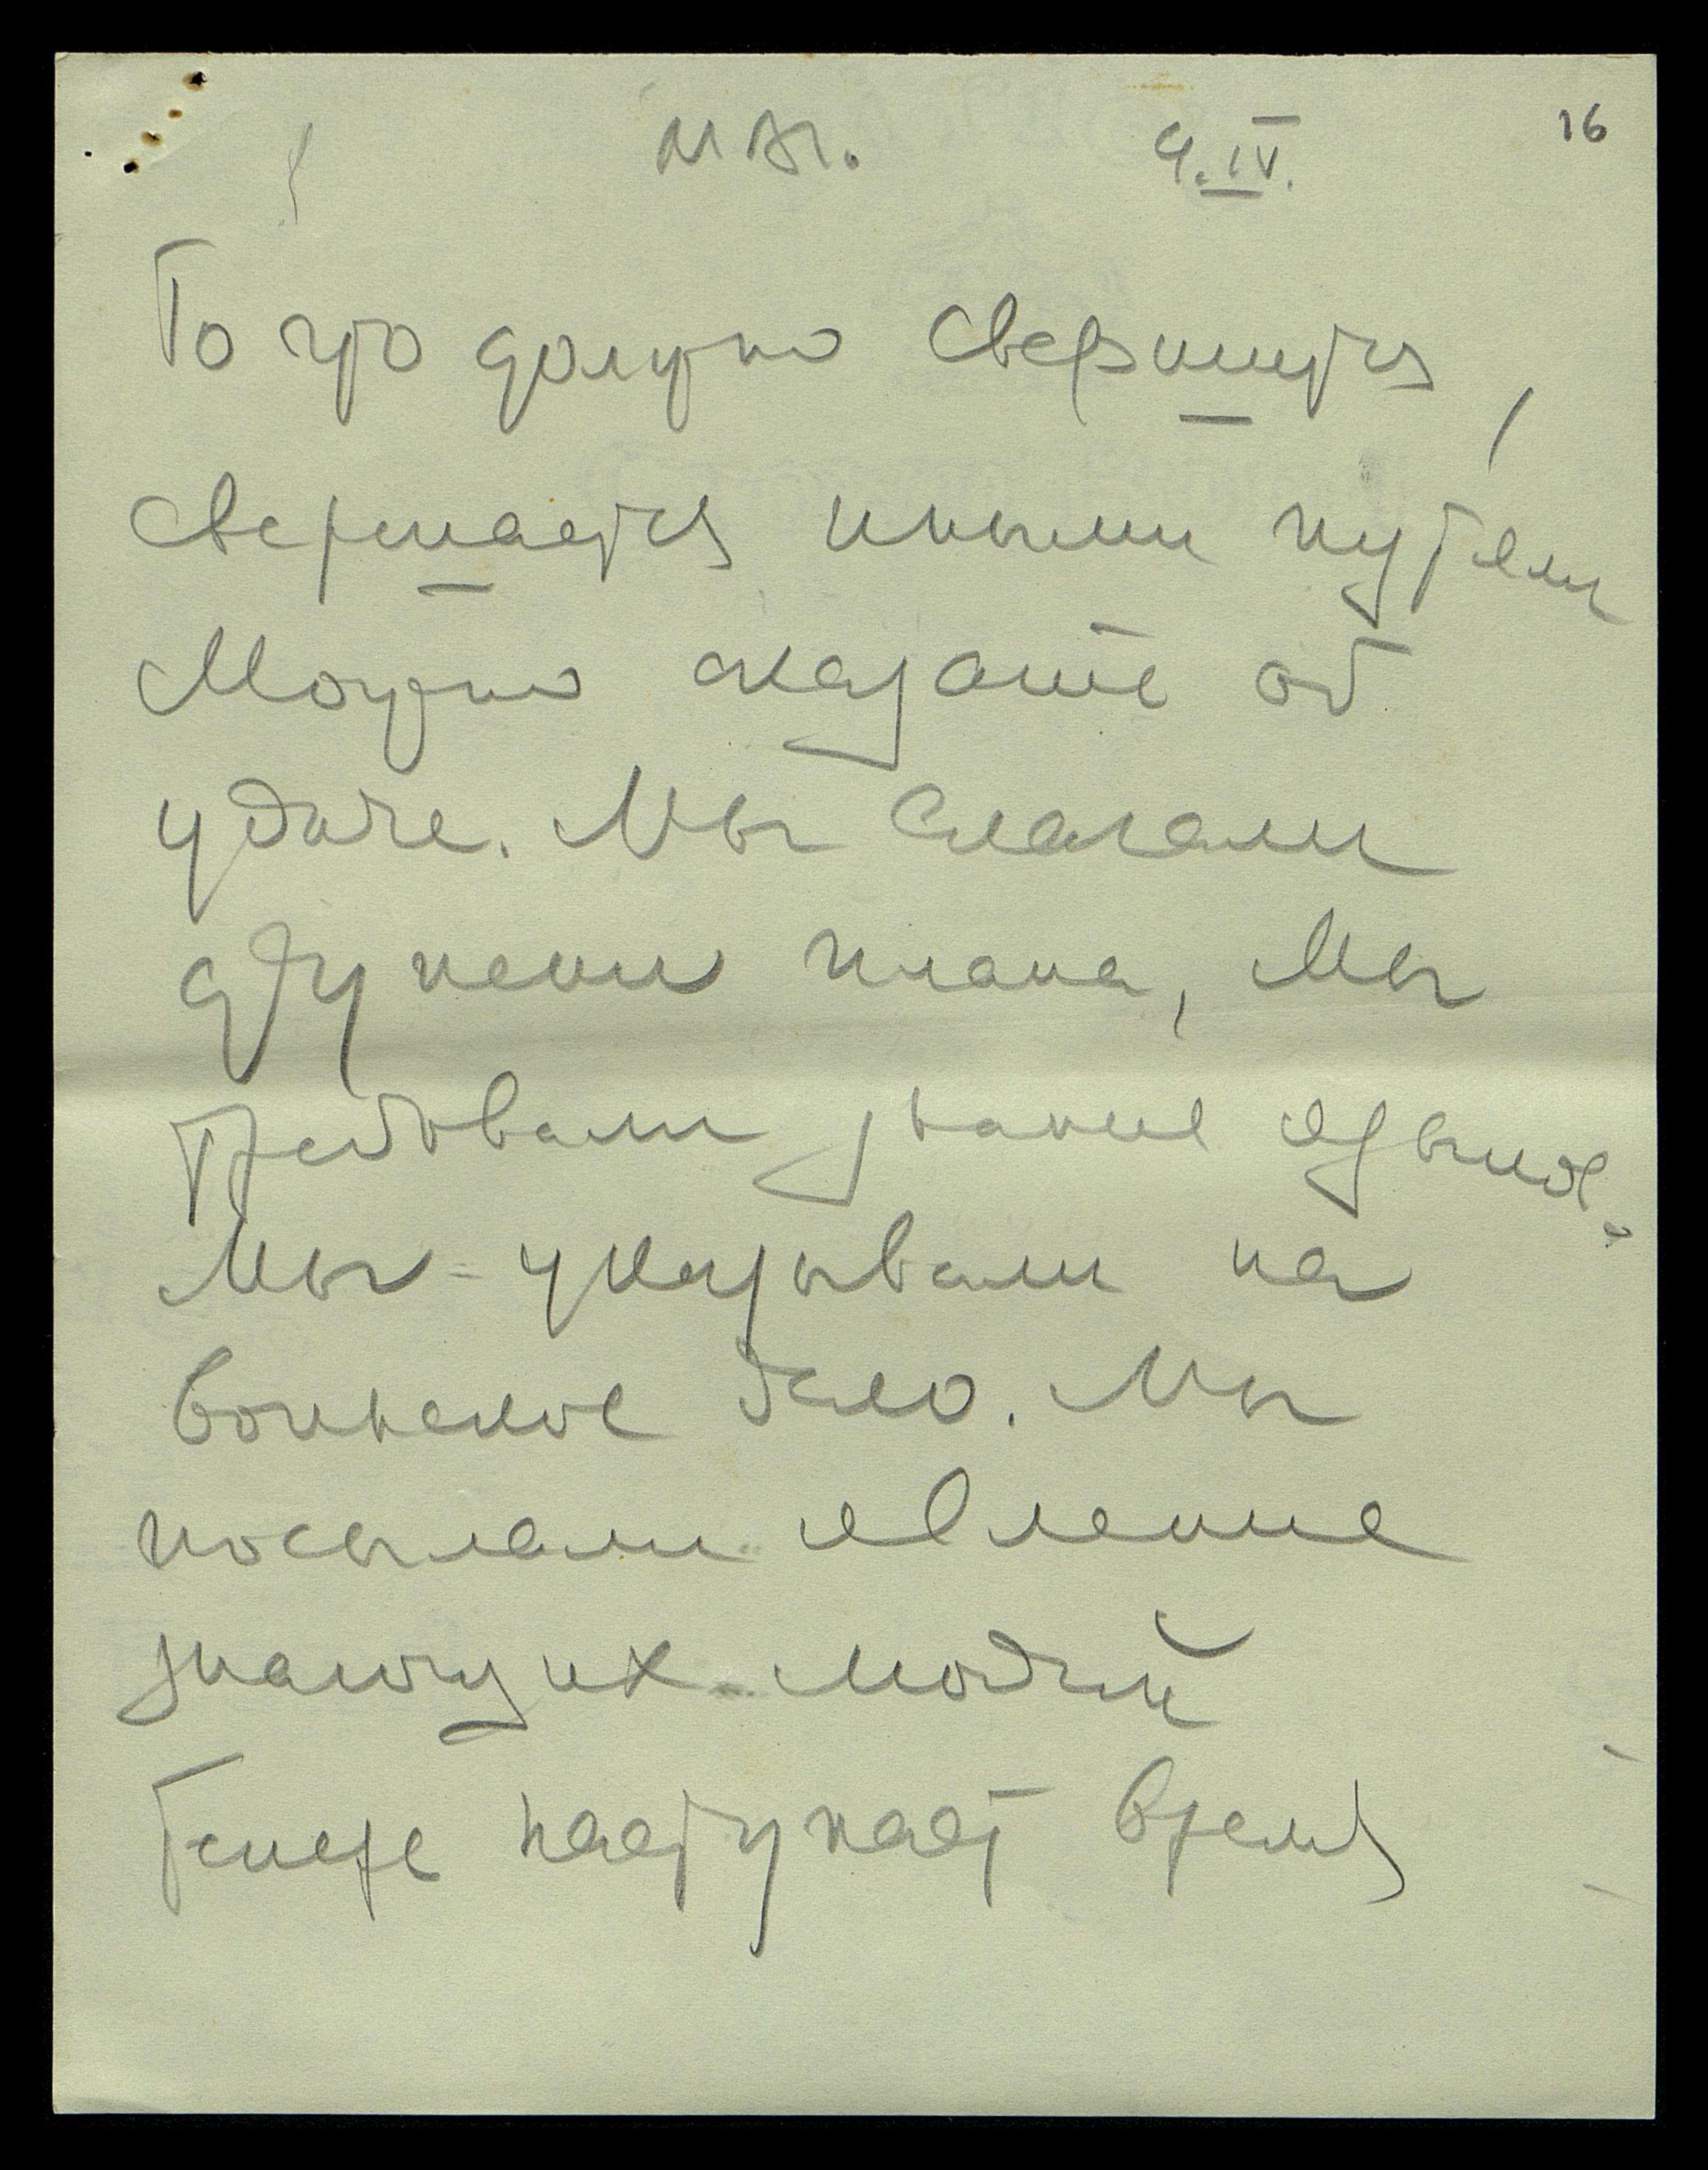 9.IV. 16
То что должно свершиться,
свершается иными путями
Можно сказать об
удаче. Мы слагали
ступени плана, Мы
требовали знание языков.
Мы указывали на
воинское дело. Мы
посылали явление
знающих людей
Теперь наступает время